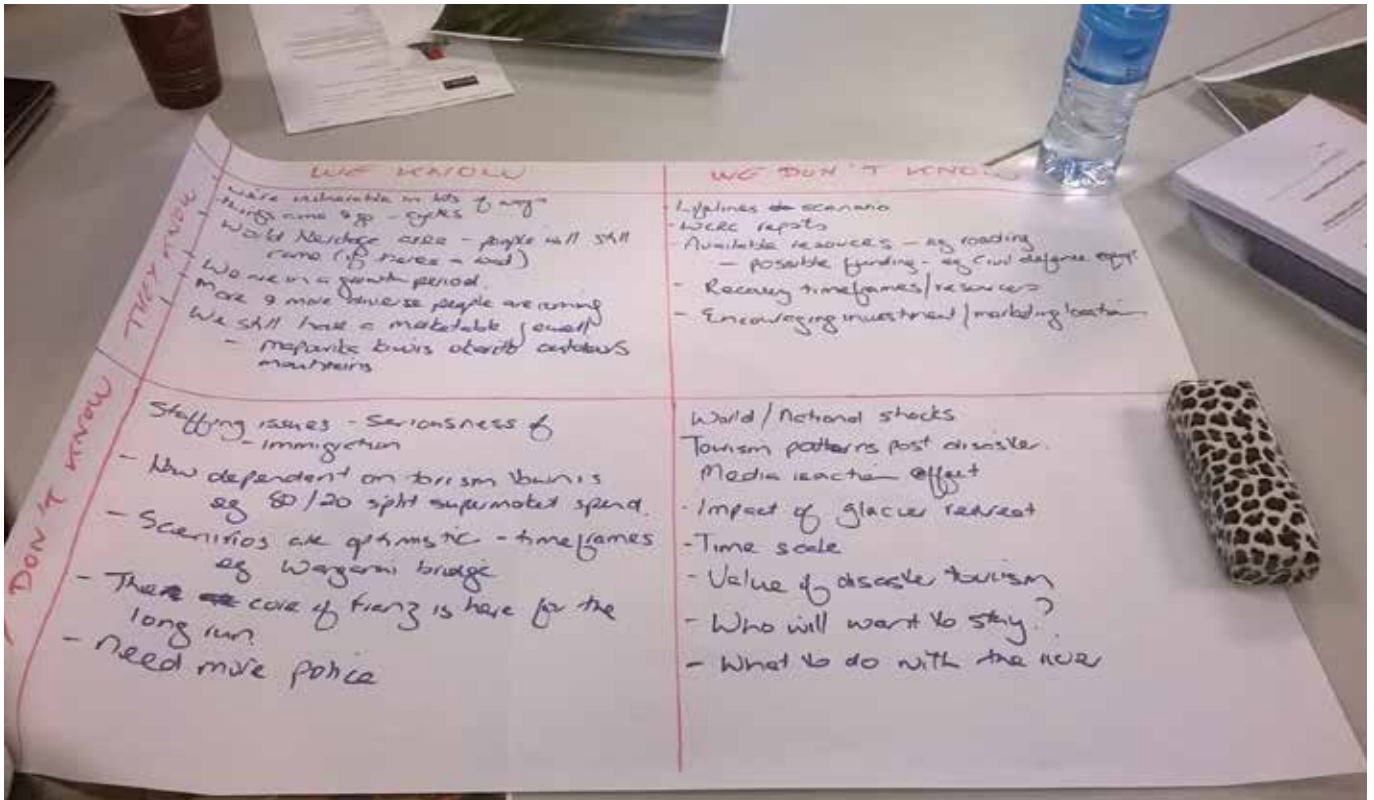 WE KNOW
WE DON'T KNOW
THEY KNOW
- We're vulnerable in lots of ways
- things come & go - cycles
- World Heritage area - people will still
come (if there's a road)
- We are in a growth period.
- More & more diverse people are coming
- We still have a marketable jewell
- mountains
- Lifelines scenario
- WCRC
- Available resources - eg roading
- possible funding - eg Civil defence
- Recovery timeframes/resources
- Encouraging investment/marketing location
DON'T KNOW
Staffing issues - Seriousness of
- Immigration
- How dependent on
eg 80/20 split supermarket spend.
- Scenirios are optimistic - timeframes
eg bridge
- core of Franz is here for the
long run.
- need more police
World/National shocks
Tourism patterns post disaster.
Media reaction effect
- Impact of glacier retreat
- Time scale
- Value of disaster tourism
- Who will want to stay?
- What to do with the river